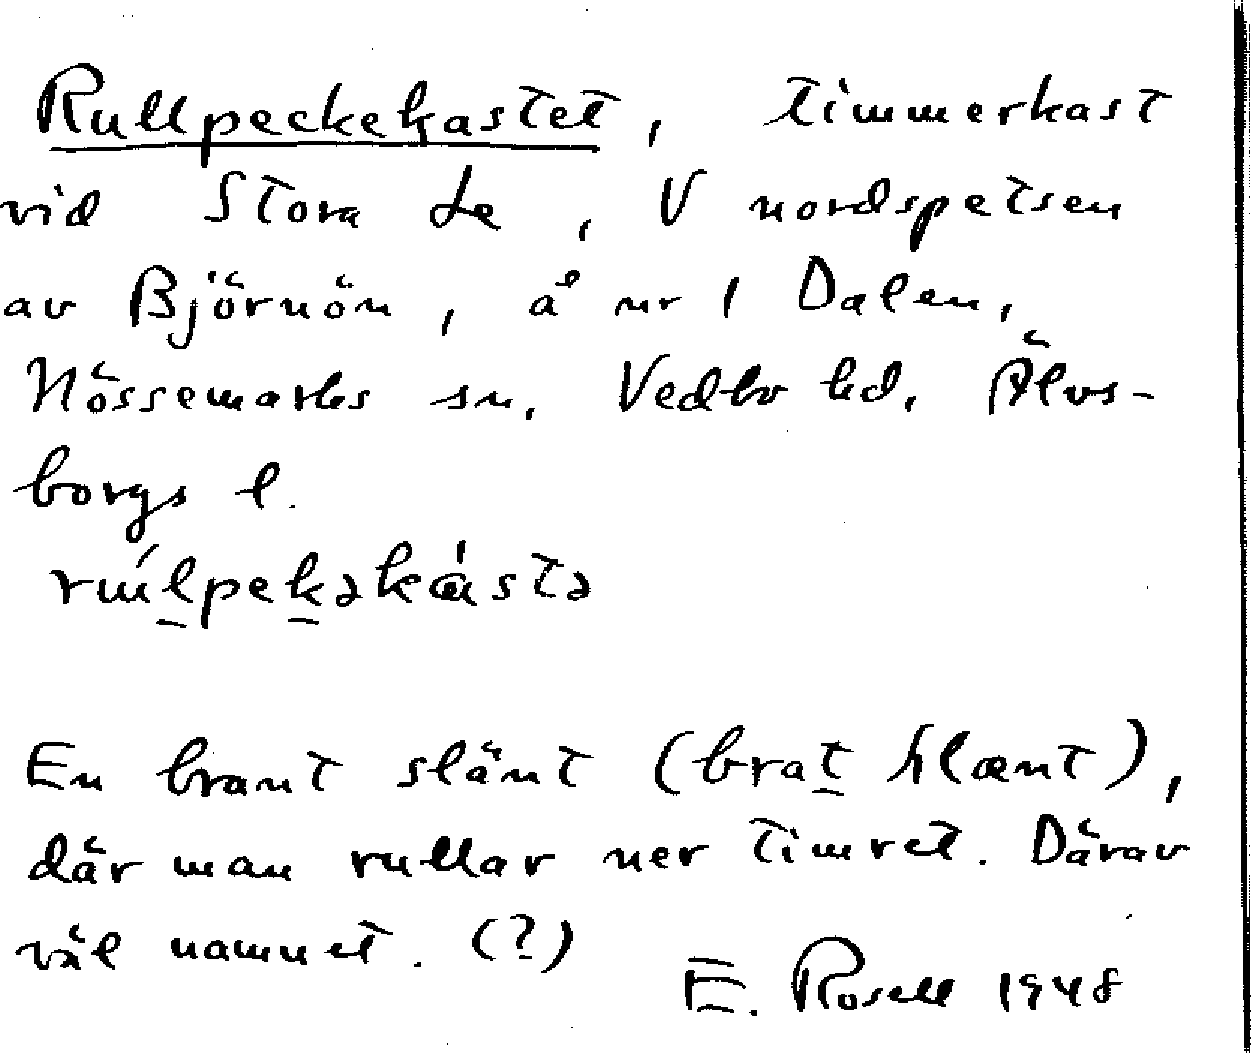 Rullpeckekastet, timmerkast
vid Stora Le, V nordspetsen
av Björnön, å nr 1 Dalen,
Nössemarks sn, Vedbo hd, Älvs-
borgs l.
En brant slänt (brat slænt),
där man rullar ner timret. Därav
väl namnet. (?)
E. Rosell 1948